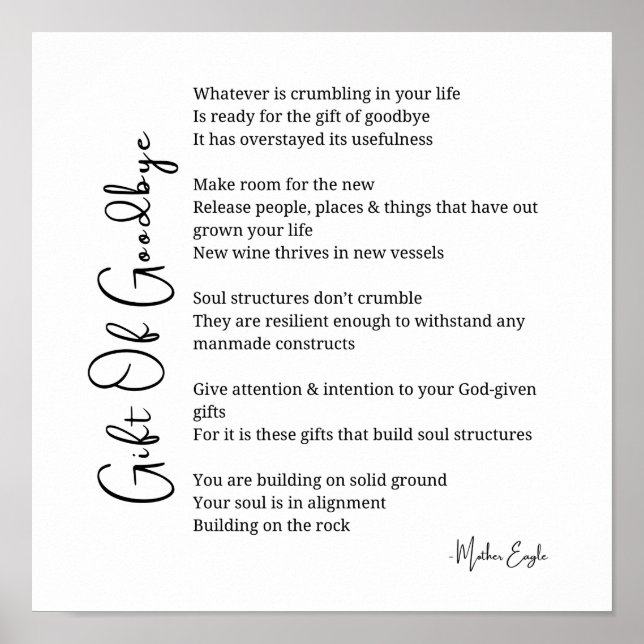 Gift Of Goodbye
Whatever is crumbling in your life
Is ready for the gift of goodbye
It has overstayed its usefulness
Make room for the new
Release people, places & things that have out
grown your life
New wine thrives in new vessels
Soul structures don’t crumble
They are resilient enough to withstand any
manmade constructs
Give attention & intention to your God-given
gifts
For it is these gifts that build soul structures
You are building on solid ground
Your soul is in alignment
Building on the rock
-Mother Eagle